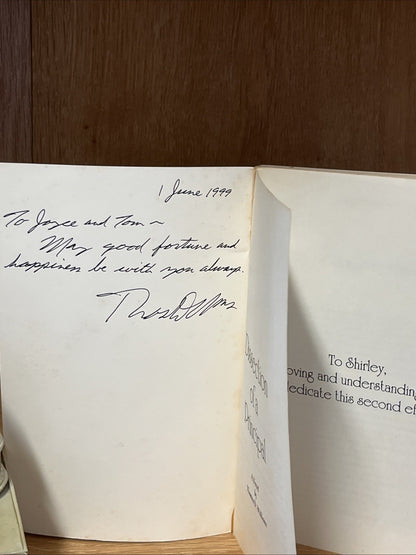 1 June 1999
To Joyce and Tom ~
May good fortune and
happiness be with you always.
of a
Principal
To Shirley,
oving and understanding
dedicate this second ef